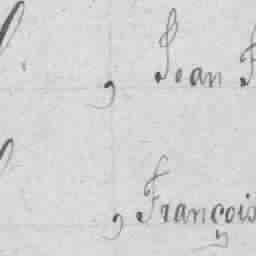 , Jean F
, François